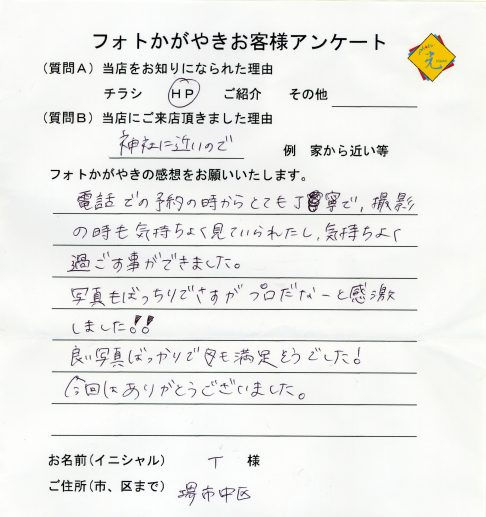 フォトかがやきお客様アンケート
(質問A) 当店をお知りになられた理由
チラシ HP ご紹介 その他
(質問B) 当店にご来店頂きました理由
神社に近いので 例 家から近い等
フォトかがやきの感想をお願いいたします。
電話での予約の時からとても丁寧で、撮影
の時も気持ちよく見ていられたし、気持ちよく
過ごす事ができました。
写真もばっちりでさすがプロだなーと感激
しました!!
良い写真ばっかりで母も満足そうでした!
今回はありがとうございました。
お名前(イニシャル) T 様
ご住所(市、区まで) 堺市中区